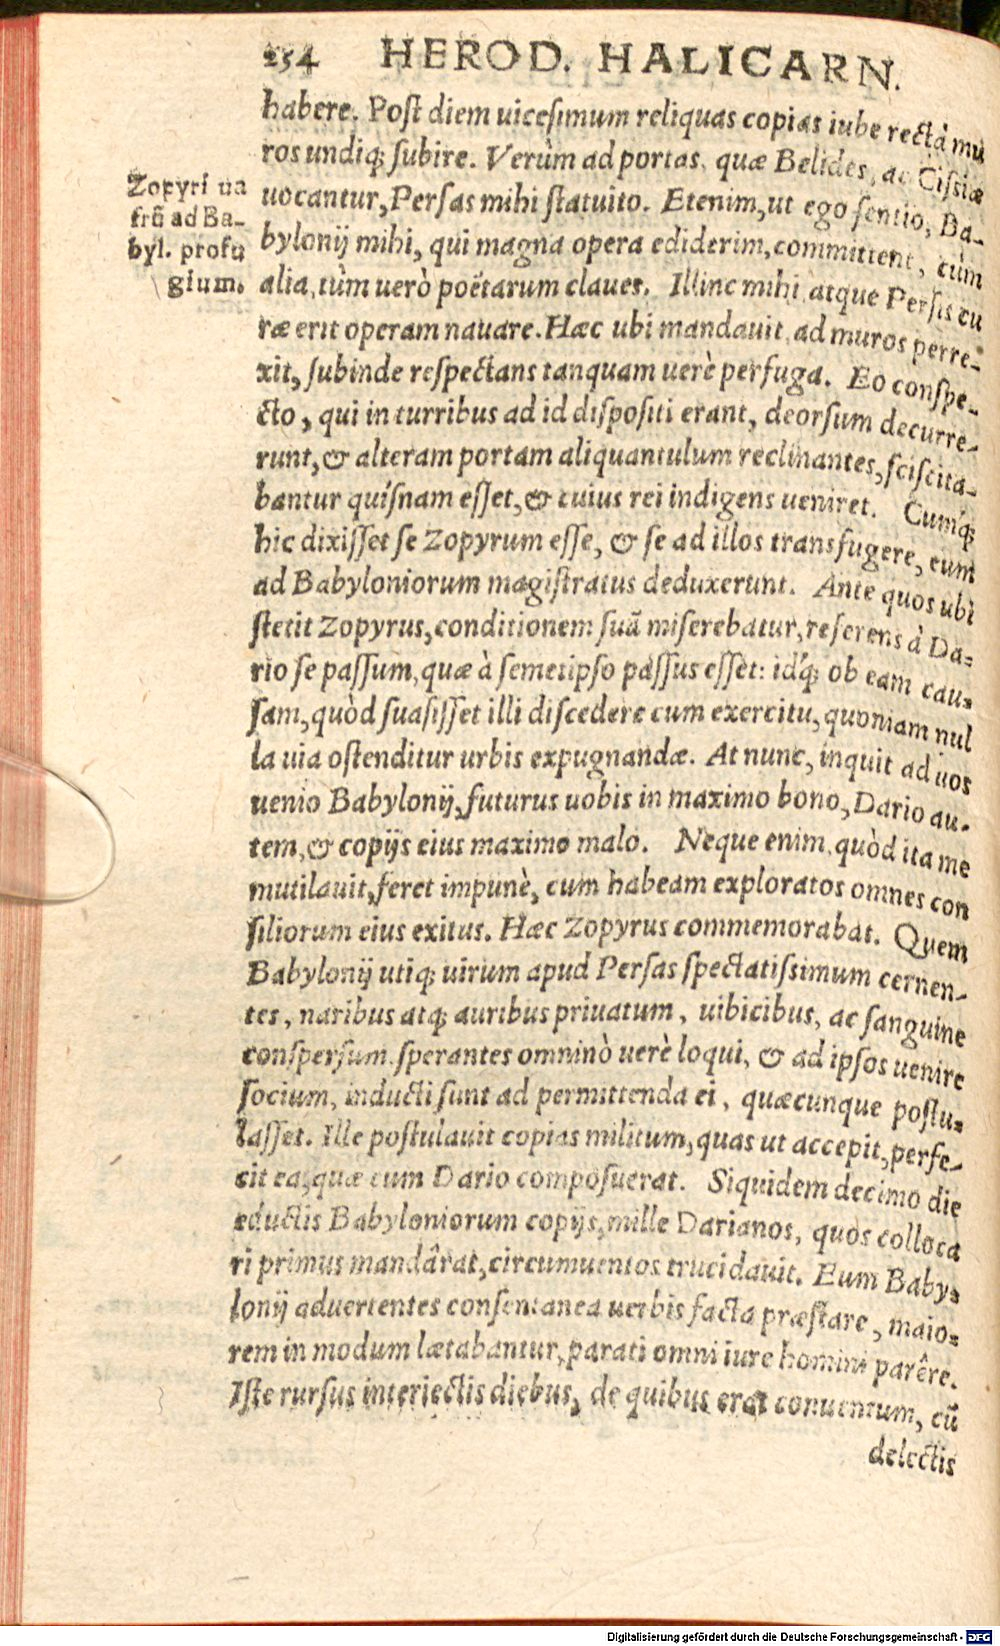 254 HEROD. HALICARN.
habere. Post diem uicesimum reliquas copias iube rectà mu
ros undiq; subire. Verùm ad portas, quæ Belides, ac Cissiæ
uocantur, Persas mihi statuito. Etenim, ut ego sentio, Ba-
bylonij mihi, qui magna opera ediderim, committent, cùm
alia, tùm uerò poëtarum claues. Illinc mihi atque Persis cu
ræ erit operam nauare. Hæc ubi mandauit, ad muros perre-
xit, subinde respectans tanquam uerè perfuga. Eo conspe-
cto, qui in turribus ad id dispositi erant, deorsum decurre-
runt, & alteram portam aliquantulum reclinantes, sciscita-
bantur quísnam esset, & cuius rei indigens ueniret. Cumq́;
hic dixisset se Zopyrum esse, & se ad illos transfugere, eum
ad Babyloniorum magistratus deduxerunt. Ante quos ubi
stetit Zopyrus, conditionem suã miserebatur, referens à Da-
rio se passum, quæ à semetipso passus esset: idq́; ob eam cau-
sam, quòd suasisset illi discedere cum exercitu, quoniam nul
la uia ostenditur urbis expugnandæ. At nunc, inquit ad uos
uenio Babylonij, futurus uobis in maximo bono, Dario au-
tem, & copijs eius maximo malo. Neque enim, quòd ita me
mutilauit, feret impunè, cum habeam exploratos omnes con
siliorum eius exitus. Hæc Zopyrus commemorabat. Quem
Babylonij utiq; uirum apud Persas spectatissimum cernen-
tes, naribus atq; auribus priuatum, uibicibus, ac sanguine
conspersum, sperantes omninò uerè loqui, & ad ipsos uenire
socium, inducti sunt ad permittenda ei, quæcunque postu-
lasset. Ille postulauit copias militum, quas ut accepit, perfe-
cit ea, quæ cum Dario composuerat. Siquidem decimo die
eductis Babyloniorum copijs, mille Darianos, quos colloca
ri primus mandârat, circumuentos trucidauit. Eum Baby-
lonij aduertentes consentanea uerbis facta præstare, maio-
rem in modum lætabantur, parati omni iure homini parêre.
Iste rursus interiectis diebus, de quibus erat conuentum, cũ
delectis
Zopyri ua
frũ ad Ba-
byl. profu
gium.
Digitalisierung gefördert durch die Deutsche Forschungsgemeinschaft - DFG